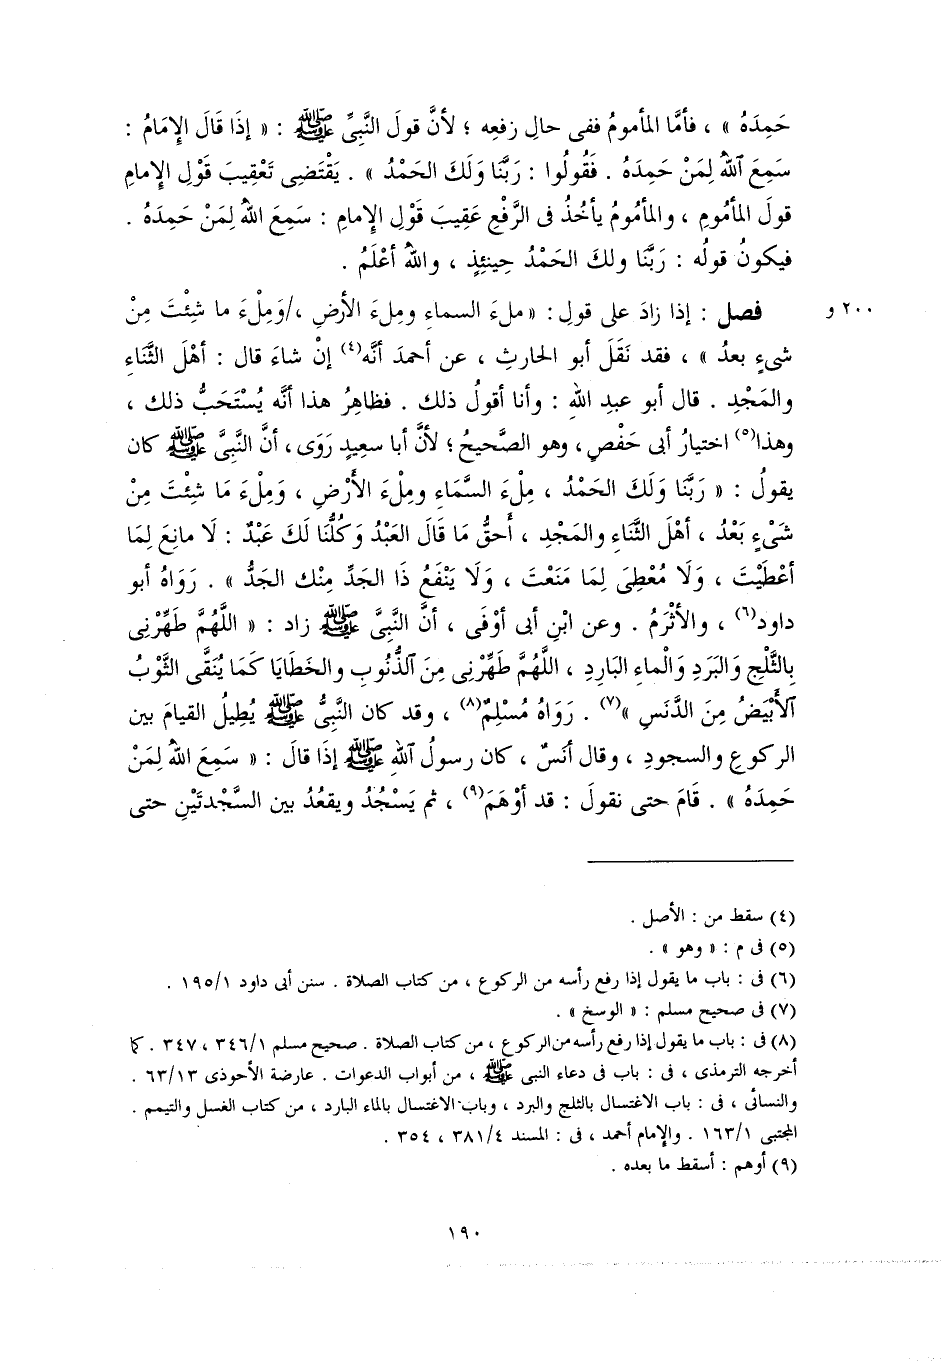 حَمِدَهُ » ، فأمَّا المأمومُ ففى حالِ رفعِه ؛ لأنَّ قولَ النَّبِىِّ ﷺ : « إذَا قَالَ الإمَامُ :
سَمِعَ ٱللهُ لِمَنْ حَمِدَهُ . فَقُولُوا : رَبَّنَا وَلَكَ الحَمْدُ » . يَقْتَضِى تَعْقِيبَ قَوْلِ الإمامِ
قولَ المأمُومِ ، والمأمُومُ يأخُذُ فى الرَّفْعِ عَقِيبَ قَوْلِ الإمامِ : سَمِعَ اللهُ لِمَنْ حَمِدَهُ .
فيكونُ قولُه : رَبَّنَا ولكَ الحَمْدُ حِينَئِذٍ ، واللهُ أعْلَمُ .
فصل : إذا زادَ على قولِ : « ملءَ السماءِ ومِلءَ الأرضِ ،/وَمِلْءَ ما شِئْتَ مِنْ ٢٠٠ و
شىءٍ بعدُ » ، فقد نَقَلَ أبو الحارثِ ، عن أحمدَ أنَّه(٤) إنْ شاءَ قال : أهْلَ الثَّنَاءِ
والمَجْدِ . قال أبو عبدِ اللهِ : وأنا أقولُ ذلك . فظاهِرُ هذا أنَّه يُسْتَحَبُّ ذلك ،
وهذا(٥) اختيارُ أبى حَفْصٍ ، وهو الصَّحيحُ ؛ لأنَّ أبا سعِيدٍ رَوَى ، أنَّ النَّبِىَّ ﷺ كان
يقولُ : « رَبَّنَا وَلَكَ الحَمْدُ ، مِلْءَ السَّمَاءِ ومِلْءَ الأَرْضِ ، وَمِلْءَ مَا شِئْتَ مِنْ
شَىْءٍ بَعْدُ ، أهْلَ الثَّنَاءِ والمَجْدِ ، أحقُّ مَا قَالَ العَبْدُ وَكُلُّنَا لَكَ عَبْدٌ : لَا مانِعَ لِمَا
أعْطَيْتَ ، وَلَا مُعْطِىَ لِمَا مَنَعْتَ ، وَلَا يَنْفَعُ ذَا الجَدِّ مِنْك الجَدُّ » . رَوَاهُ أبو
داود(٦) ، والأثْرَمُ . وعن ابْنِ أبى أوْفَى ، أنَّ النَّبِىَّ ﷺ زاد : « اللَّهُمَّ طَهِّرْنِى
بِالثَّلْجِ وَالبَرَدِ وَالْماءِ البَارِدِ ، اللَّهُمَّ طَهِّرْنِى مِنَ ٱلذُّنُوبِ والخَطَايَا كَمَا يُنَقَّى الثَّوْبُ
ٱلأَبْيَضُ مِنَ الدَّنَسِ »(٧) . رَوَاهُ مُسْلِمٌ(٨) ، وقد كان النَّبِىُّ ﷺ يُطِيلُ القيامَ بين
الركوعِ والسجودِ ، وقال أنَسٌ ، كان رسولُ ٱللهِ ﷺ إذَا قالَ : « سَمِعَ اللهُ لِمَنْ
حَمِدَهُ » . قَامَ حتى نقولَ : قد أوْهَمَ(٩) ، ثم يَسْجُدُ ويقعُدُ بين السَّجْدتَيْنِ حتى
(٤) سقط من : الأصل .
(٥) فى م : « وهو » .
(٦) فى : باب ما يقول إذا رفع رأسه من الركوع ، من كتاب الصلاة . سنن أبى داود ١/١٩٥ .
(٧) فى صحيح مسلم : « الوسخ » .
(٨) فى : باب ما يقول إذا رفع رأسه من الركوع ، من كتاب الصلاة . صحيح مسلم ١/٣٤٦ ، ٣٤٧ . كما
أخرجه الترمذى ، فى : باب فى دعاء النبى ﷺ ، من أبواب الدعوات . عارضة الأحوذى ١٣/٦٣ .
والنسائى ، فى : باب الاغتسال بالثلج والبرد ، وباب الاغتسال بالماء البارد ، من كتاب الغسل والتيمم .
المجتبى ١/١٦٣ . والإمام أحمد ، فى : المسند ٤/٣٨١ ، ٣٥٤ .
(٩) أوهم : أسقط ما بعده .
١٩٠